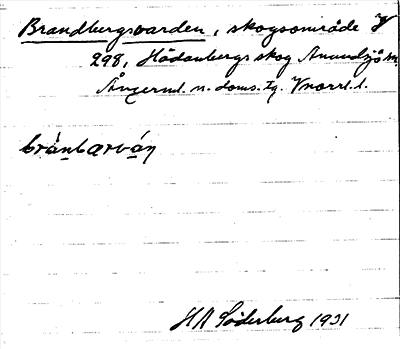 Brandbergsvarden, skogsområde V
298, Hädanbergs skog Anundsjö sn.
Ångerml. n. doms. tg. Vnorrl. l.
bràn̲barvá̲n
HA Söderberg 1931